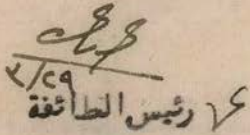 ٣/٢٩
ع/ رئيس الطائفة